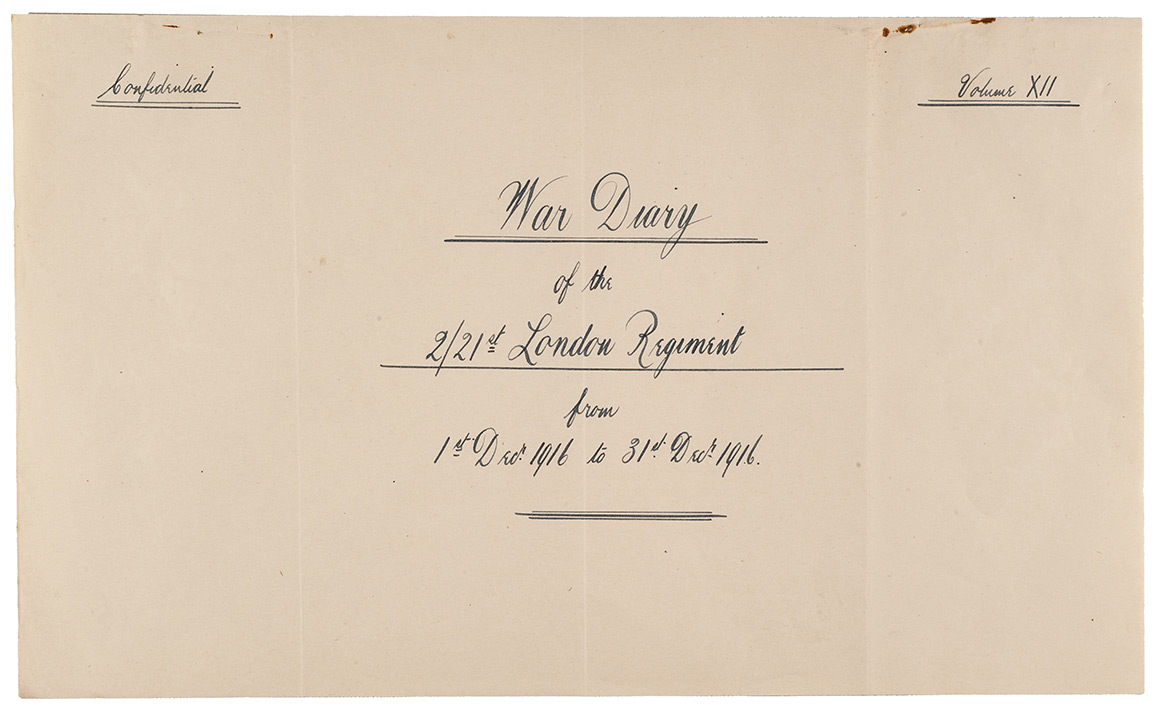 Confidential
Volume XII
War Diary
of the
2/21st London Regiment
from
1st Decr. 1916 to 31st Decr. 1916.